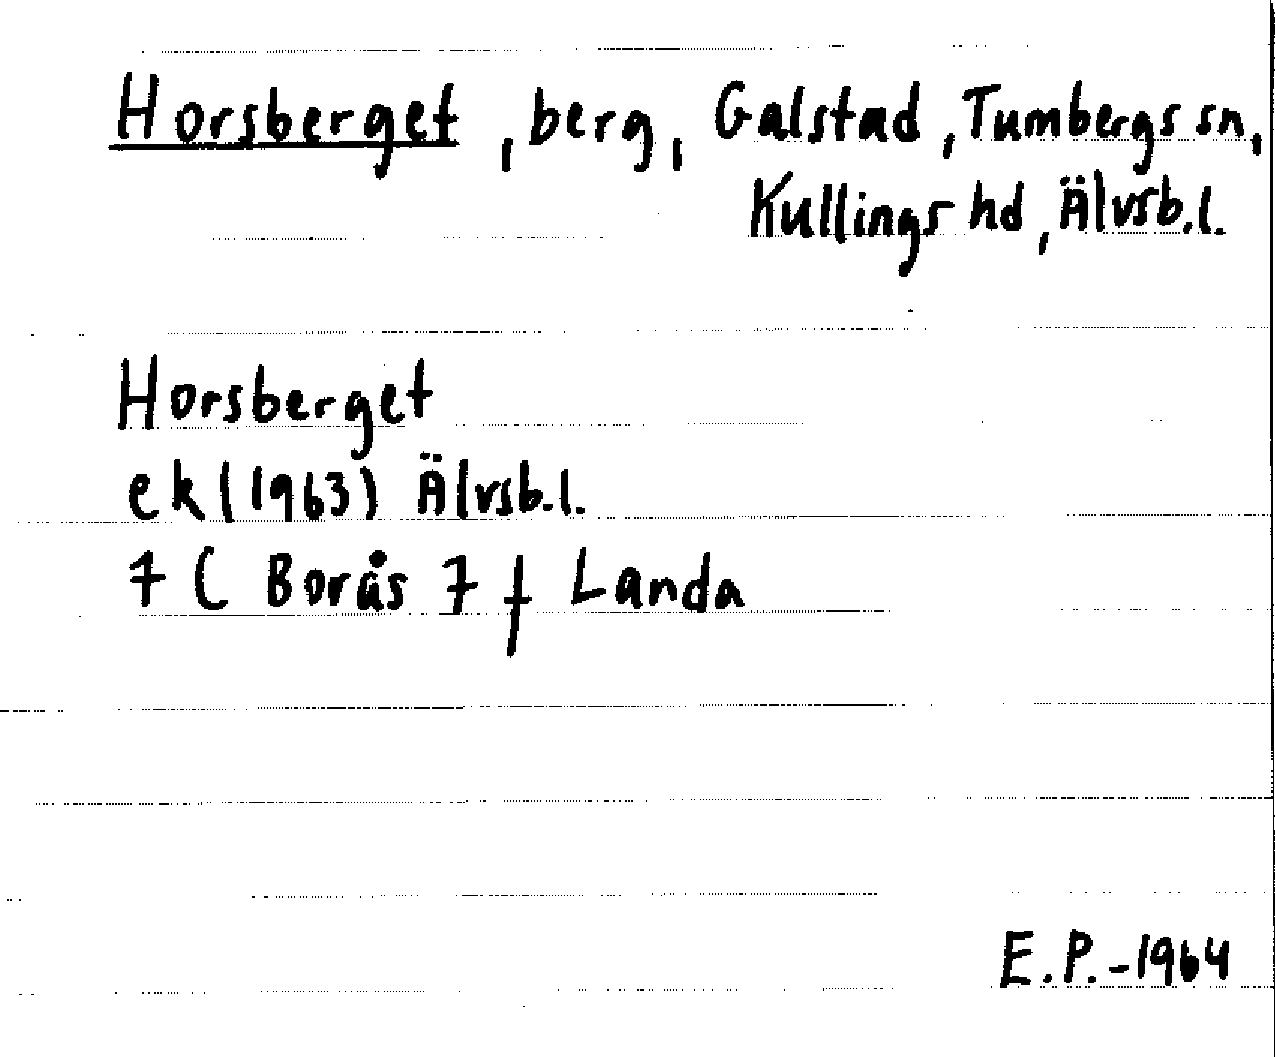 Horsberget, berg, Galstad, Tumbergs sn,
Kullings hd, Älvsb.l.
Horsberget
ek (1963) Älvsb.l.
7 C Borås 7 f Landa
E.P.-1964